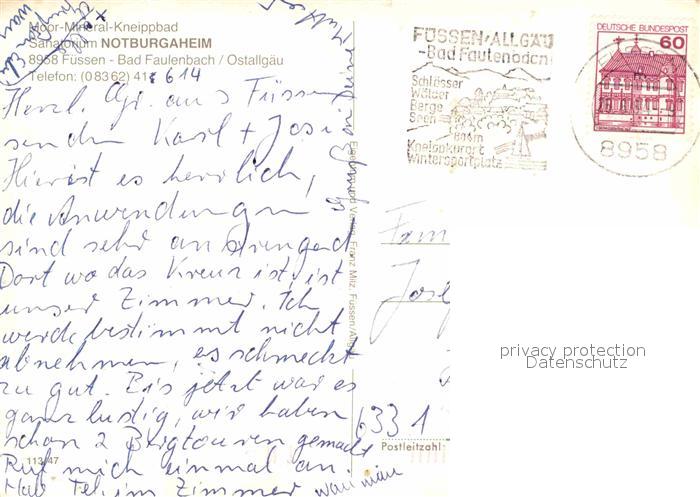 Moor-Mineral-Kneippbad
Sanatorium NOTBURGAHEIM
8958 Füssen - Bad Faulenbach / Ostallgäu
Telefon: (0 83 62) 41 614
Herzl. Gr. aus Füssen
senden Karl + Josi
Hier ist es herrlich,
die Anwendungen
sind sehr anstrengend
Dort wo das Kreuz ist, ist
unser Zimmer. Ich
werde bestimmt nicht
abnehmen, es schmeckt
zu gut. Bis jetzt war es
ganz lustig, wir haben
schon 2 Bergtouren gemacht
Ruf mich einmal an.
Hab Tel. im Zimmer
113/47
FÜSSEN/ALLGÄU
-Bad Faulenbach
Schlösser
Wälder
Berge
Seen
Kneippkurort
Wintersportplatz
DEUTSCHE BUNDESPOST
60
8958
Fam
Josef
privacy protection
Datenschutz
6331
Postleitzahl: